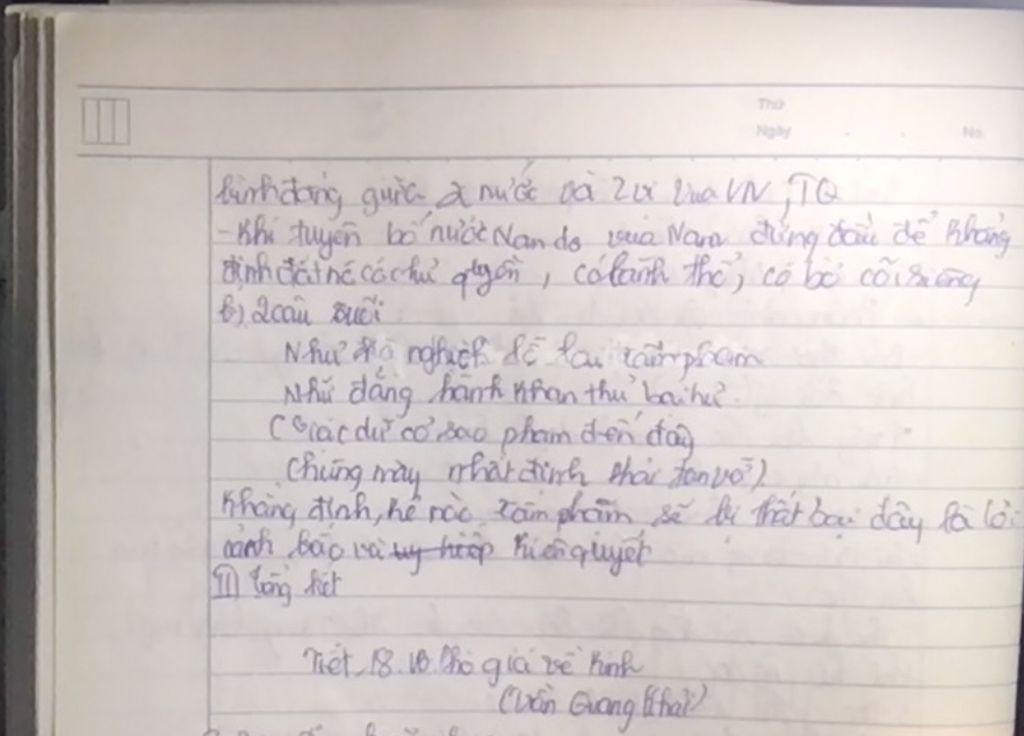 Thứ
Ngày No
bình đẳng giữa 2 nước và 2 vị vua VN, TQ
- Khi tuyên bố nước Nam do vua Nam đứng đầu để khẳng
định đất nc có chủ quyền, có lãnh thổ, có bờ cõi riêng
b) 2 câu cuối
Như hà nghịch lỗ lai xâm phạm
Nhữ đẳng hành khan thủ bại hư
(Giặc dữ cớ sao phạm đến đây
Chúng mày nhất định phải tan vỡ)
Khẳng định, kẻ nào xâm phạm sẽ bị thất bại đây là lời
cảnh báo và kiên quyết
III) Tổng kết
Tiết 18. VB Phò giá về kinh
(Trần Quang Khải)